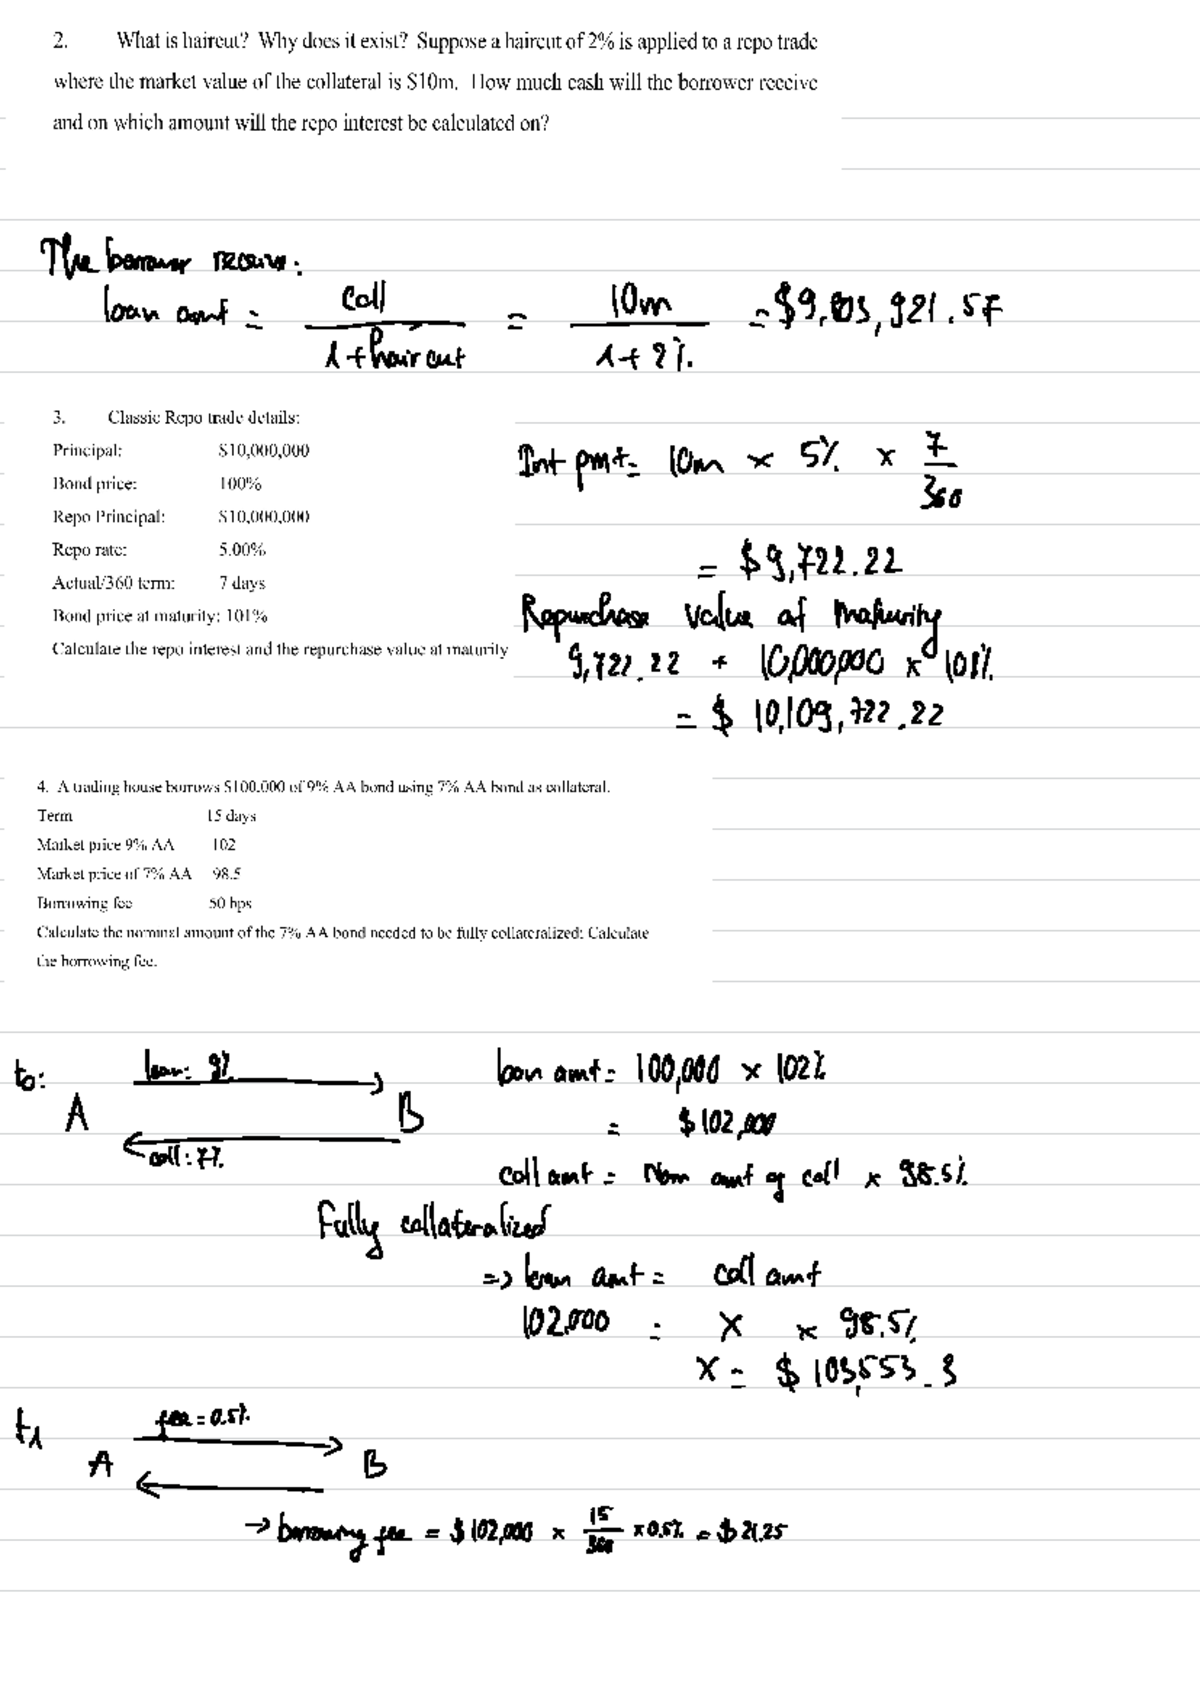 2. What is haircut? Why does it exist? Suppose a haircut of 2% is applied to a repo trade
where the market value of the collateral is $10m. How much cash will the borrower receive
and on which amount will the repo interest be calculated on?
The borrower receive:
loan amt = coll / 1 + haircut = 10m / 1 + 2% = $9,803,921.57
3. Classic Repo trade details:
Principal: $10,000,000
Bond price: 100%
Repo Principal: $10,000,000
Repo rate: 5.00%
Actual/360 term: 7 days
Bond price at maturity: 101%
Calculate the repo interest and the repurchase value at maturity
Int pmt = 10m × 5% × 7/360
= $9,722.22
Repurchase value at maturity
9,722.22 + 10,000,000 × 101%
= $ 10,109,722.22
4. A trading house borrows $100.000 of 9% AA bond using 7% AA bond as collateral.
Term 15 days
Market price 9% AA 102
Market price of 7% AA 98.5
Borrowing fee 50 bps
Calculate the nominal amount of the 7% AA bond needed to be fully collateralized: Calculate
the borrowing fee.
t0:
loan: 9%
A B
coll: 7%
loan amt = 100,000 × 102%
= $102,000
coll amt = Nom amt of coll × 98.5%
Fully collateralized
=> loan amt = coll amt
102,000 = X × 98.5%
X = $ 103,553.3
t1
fee = 0.5%
A B
→ borrowing fee = $102,000 × 15/360 × 0.5% = $21.25